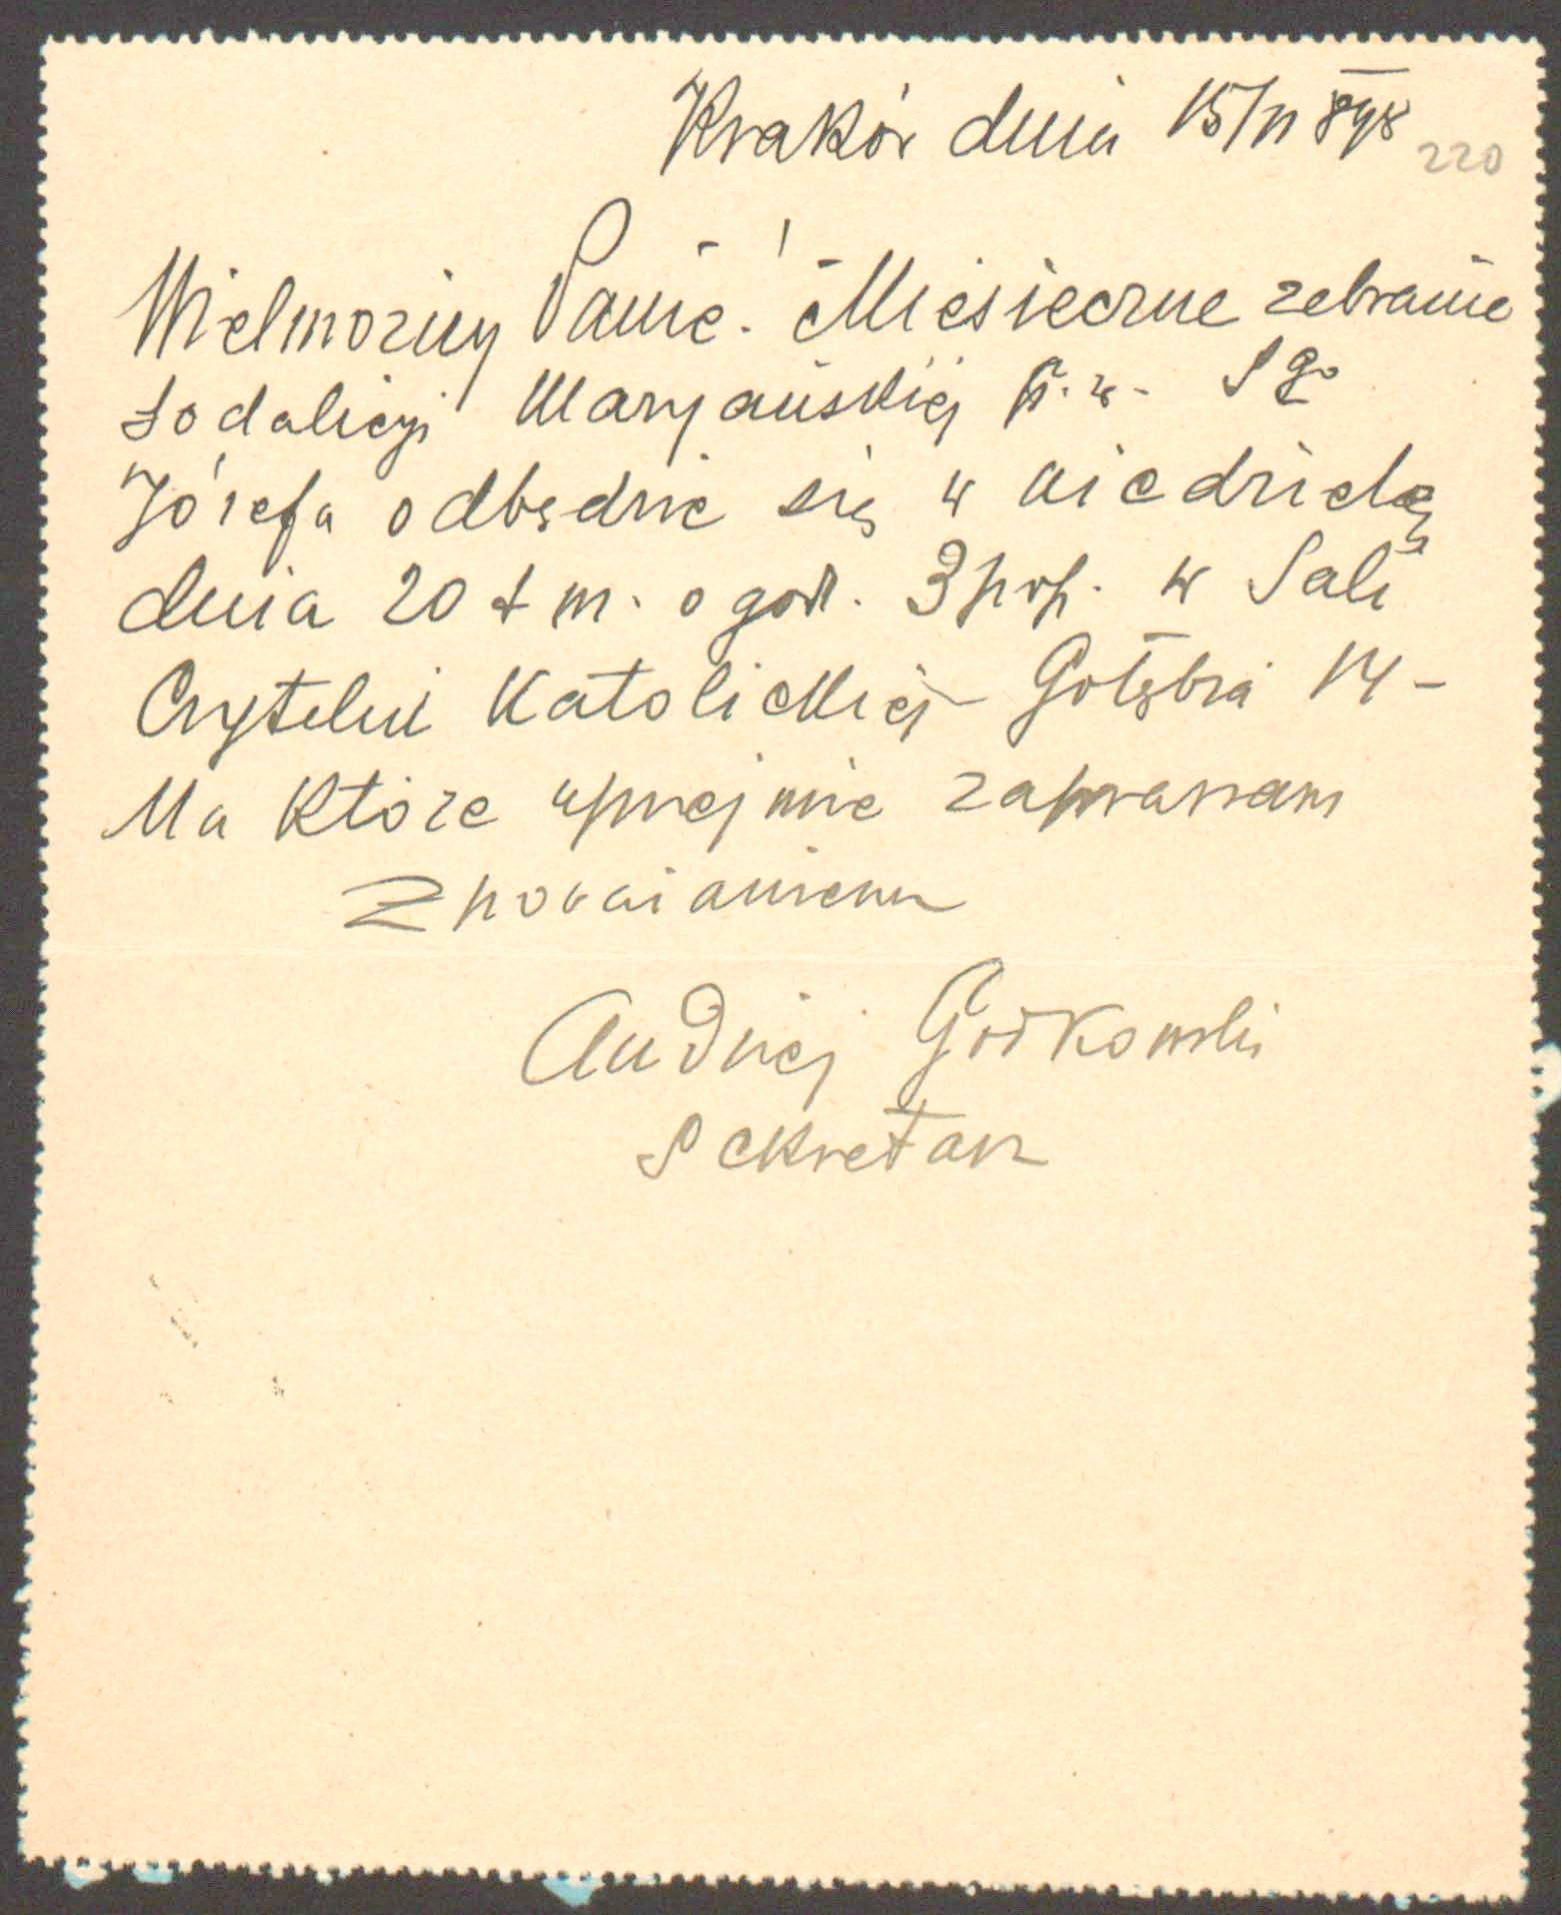 Kraków dnia 15/11 898
220
Wielmożny Panie! Miesięczne zebranie
Sodalicyi Maryańskiej p. w. Sgo
Józefa odbędzie się w niedzielę
dnia 20 t m. o god. 3 pop. w Sali
Czytelni Katolickiej Gołębia 14 –
Na które uprzejmie zapraszam
Z poważaniem
Andrzej Gorkowski
Sekretarz